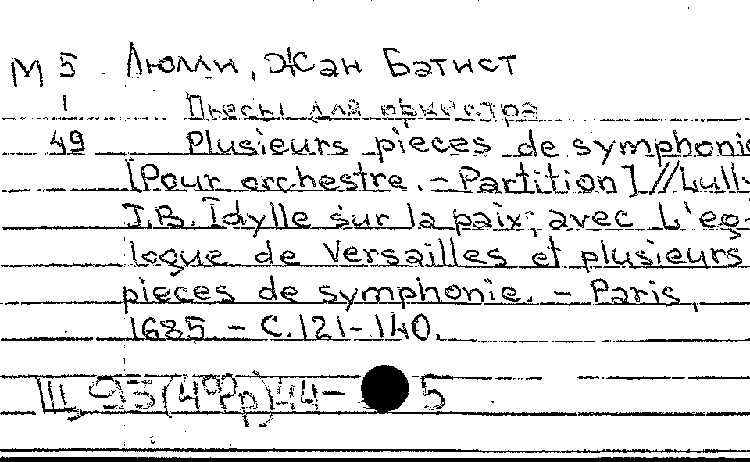 М 5 Люлли, Жан Батист
1 Пьесы для оркестра
49 Plusieurs pièces de symphonie
[Pour orchestre. - Partition] // Lully
J.B. Idylle sur la paix, avec L'eg-
logue de Versailles et plusieurs
pieces de symphonie. - Paris,
1685 - С. 121-140.
Щ 93(4Фр)44- 5